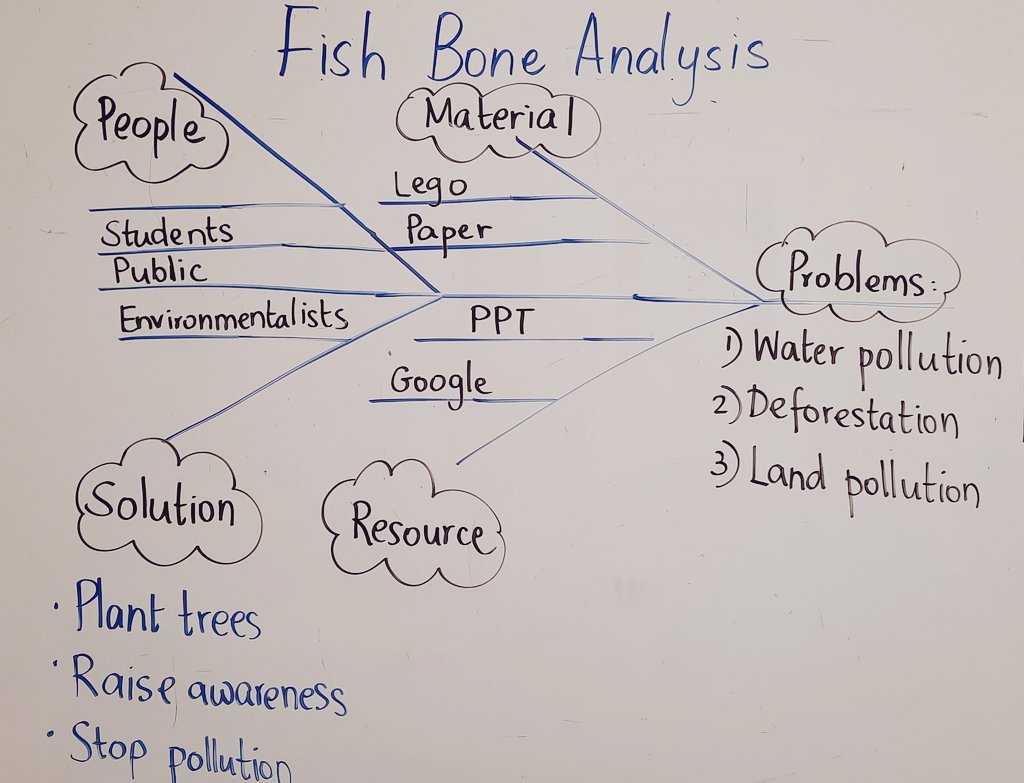 Fish Bone Analysis
People
Material
Lego
Students
Paper
Public
Environmentalists
PPT
Google
Problems:
1) Water pollution
2) Deforestation
3) Land pollution
Solution
Resource
· Plant trees
· Raise awareness
· Stop pollution